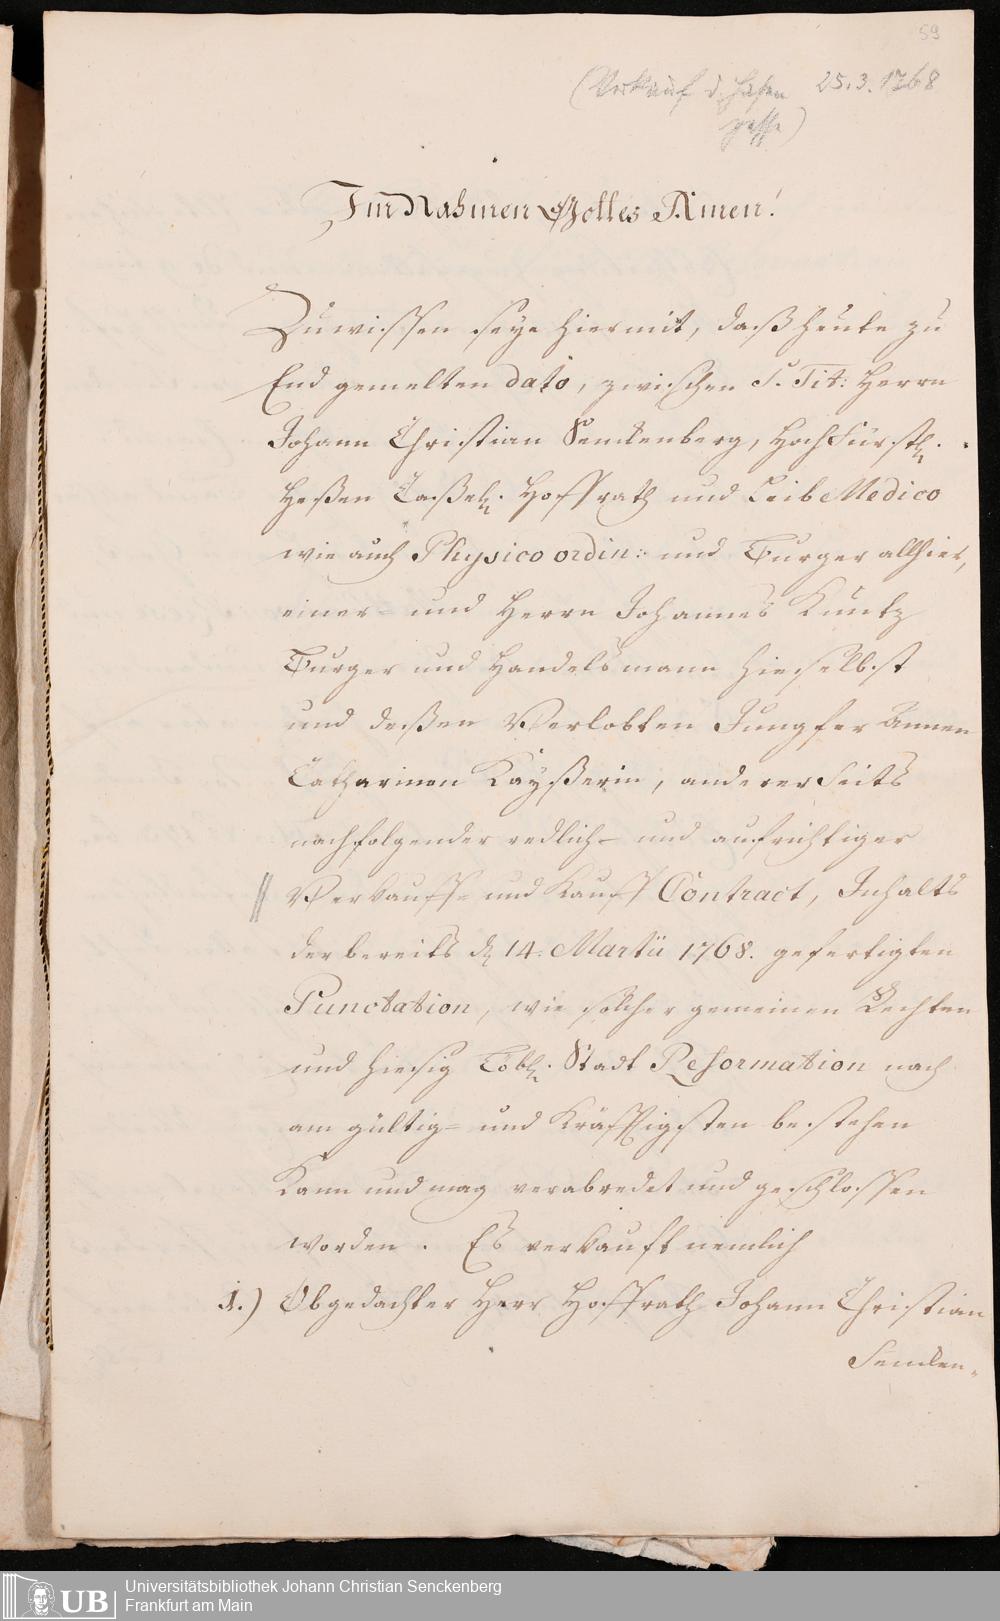 59
(Verkauf d. Hasen 25.3.1768
gasse)
Im Nahmen Gottes Amen!
Zu wissen seye hiermit, daß heute zu
End gemelten dato, zwischen S. Tit: Herrn
Johann Christian Senckenberg, Hochfürstl.
Heßen Caßel. Hoffrath und Leib Medico
wie auch Physico ordin: und Burger allhier,
einer- und Herrn Johannes Kuntz
Burger und Handelsmann hieselbst
und deßen Verlobten Jungfer Annen
Catharinen Kayßerin, anderer Seits
nachfolgender redlich- und aufrichtiger
Verkauffs- und Kauff Contract, Inhalts
der bereits d. 14. Martii 1768. gefertigten
Punctation, wie solcher gemeinen Rechten
und hiesig Löbl. Stadt Reformation nach
am gültig- und Kräfftigsten bestehen
Kann und mag verabredet und geschlossen
worden. Es verkauft nemlich
1.) Obgedachter Herr Hoffrath Johann Christian
Sencken-
UB Universitätsbibliothek Johann Christian Senckenberg
Frankfurt am Main